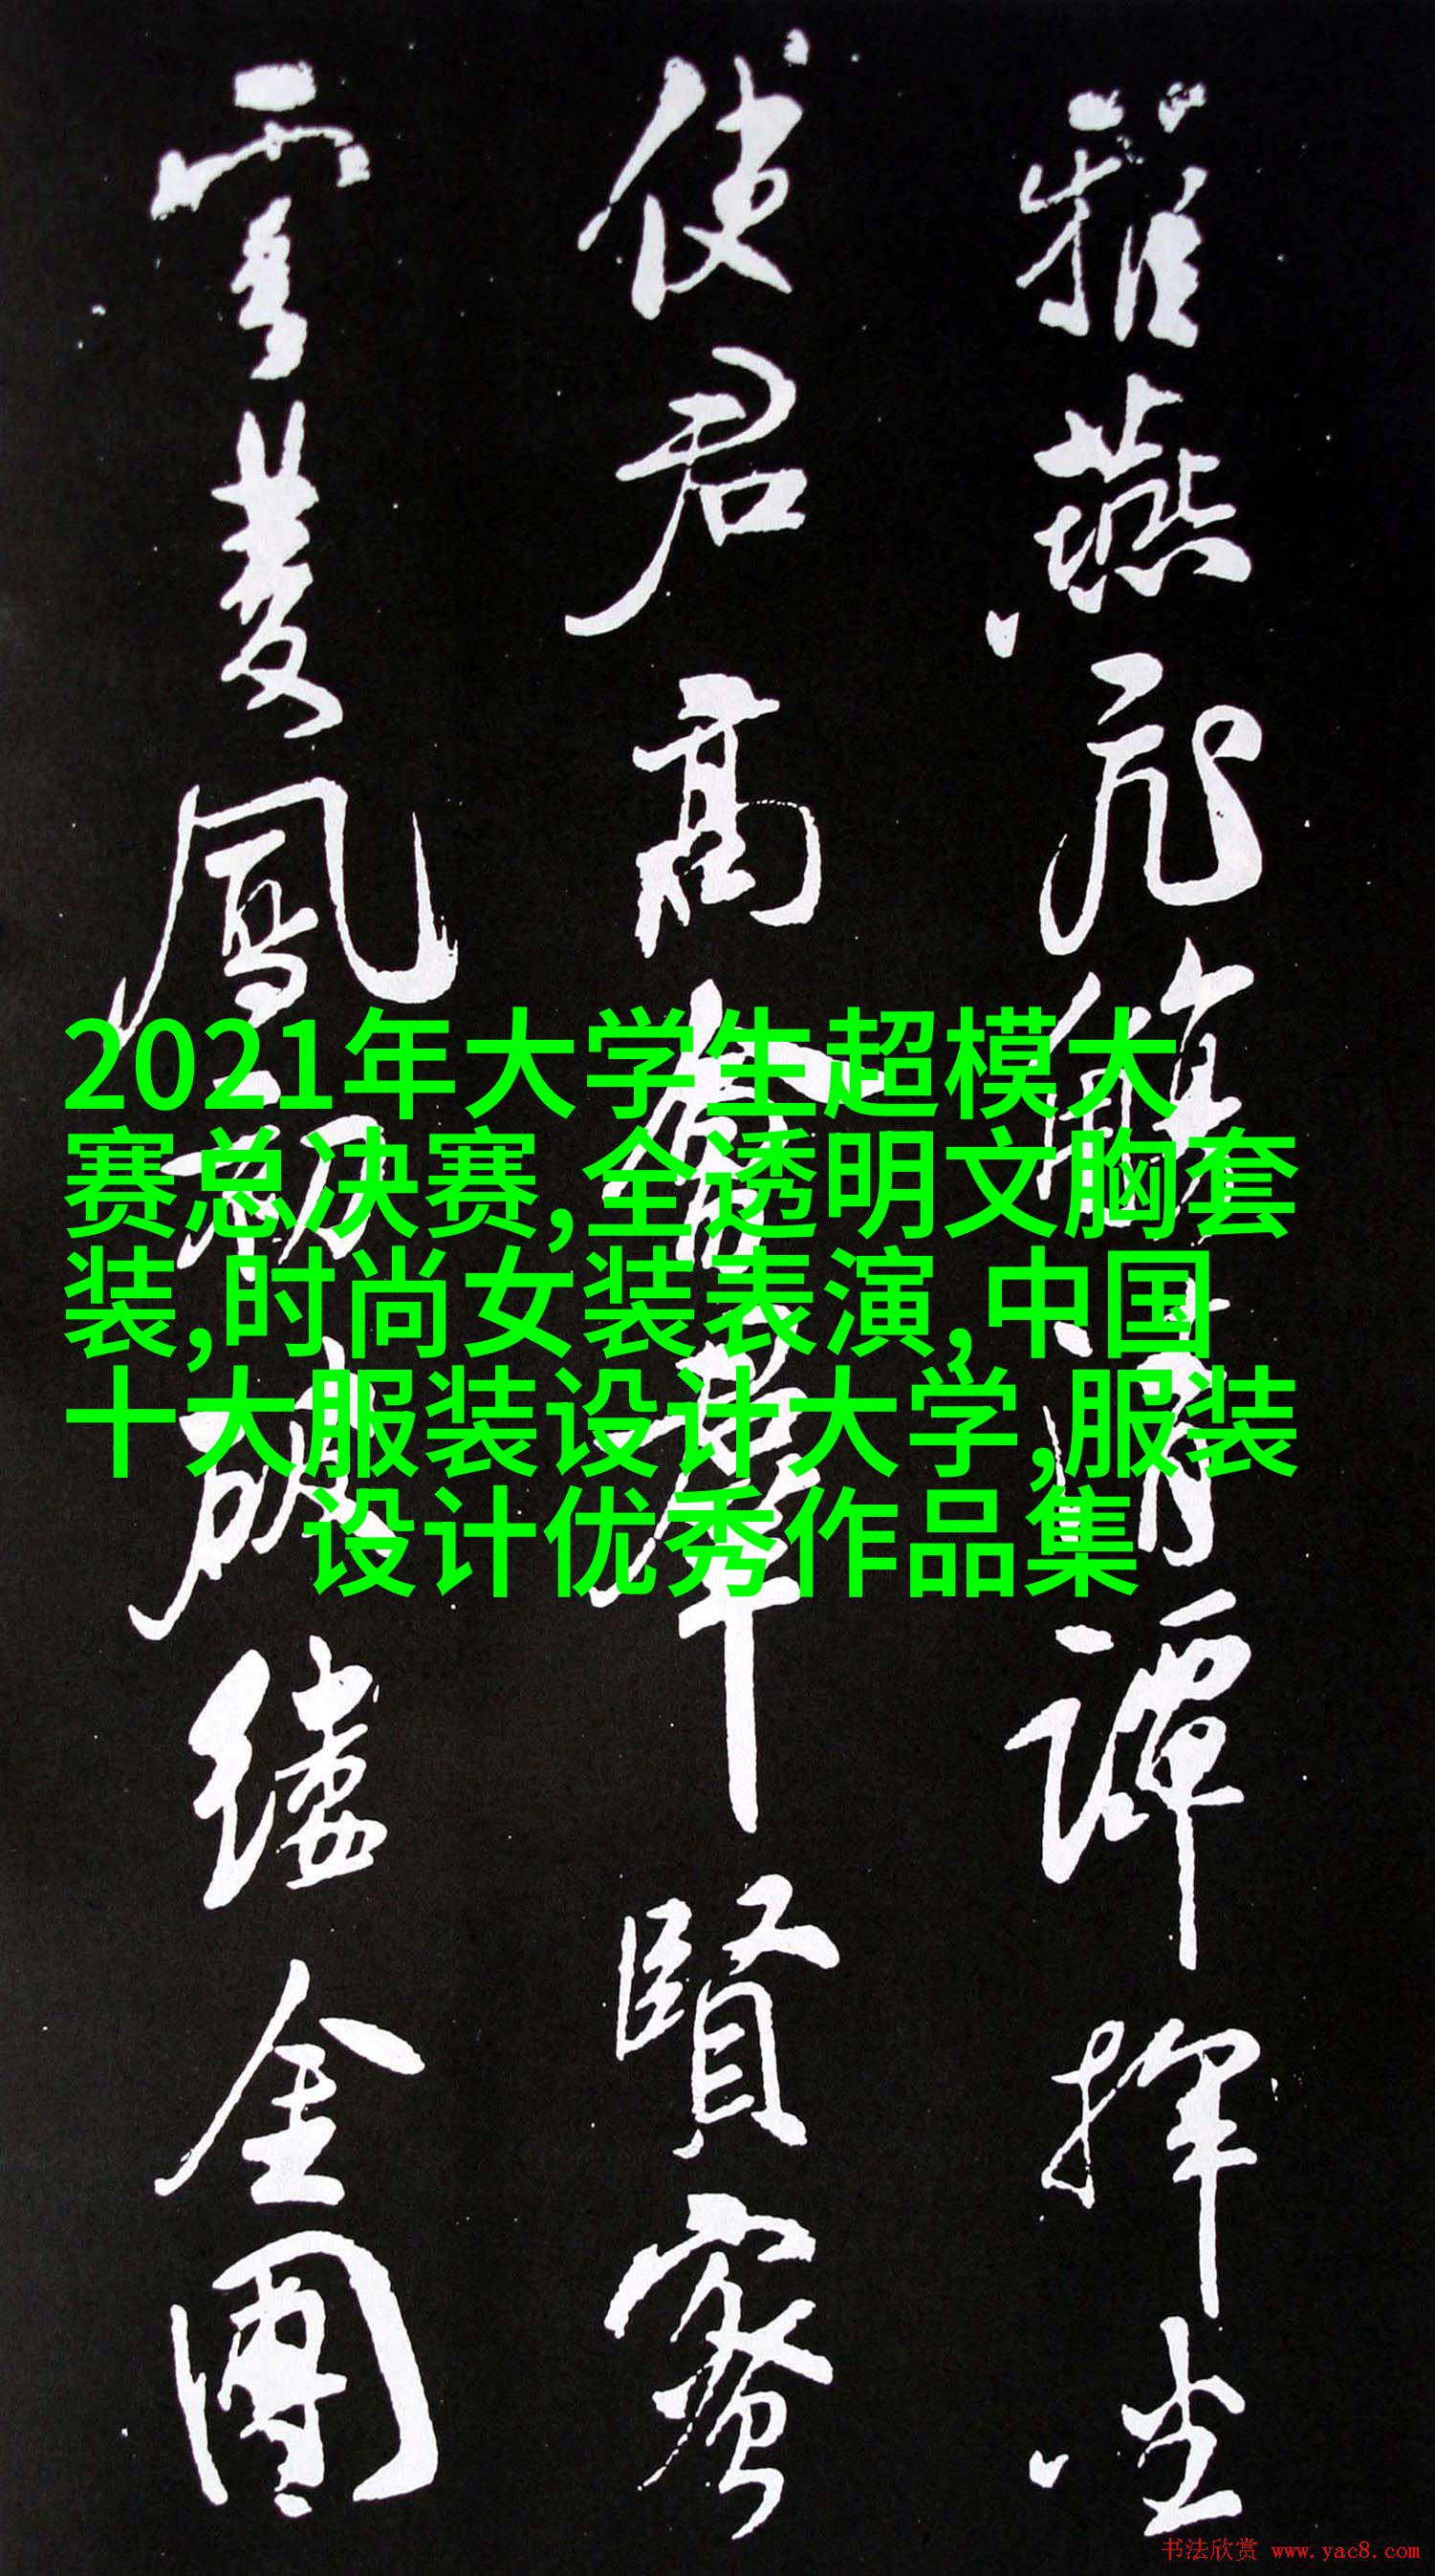 雅燕飛觴清譚揮坐
使君高會羣賢密
雲雙鳳初破縷金團
2021年大学生超模大
赛总决赛,全透明文胸套
装,时尚女装表演,中国
十大服装设计大学,服装
设计优秀作品集
书法欣赏 www.yac8.com